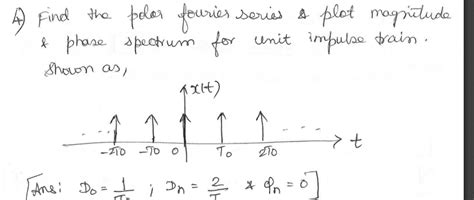 4) Find the polar fourier series & plot magnitude
& phase spectrum for unit impulse train.
Shown as,
x(t)
... -2T0 -T0 0 T0 2T0 ... t
[Ans: D0 = 1/T0 ; Dn = 2/T & φn = 0]